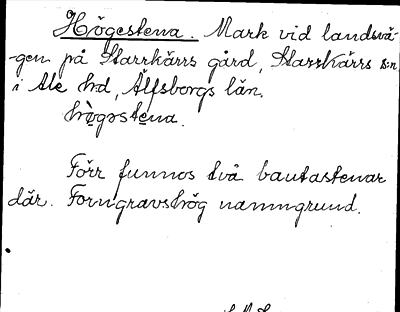 Högestena. Mark vid landsvä-
-gen på Starrkärrs gård, Starrkärrs s:n
i Ale hd, Älfsborgs län.
högəstena.
Förr funnos två bautastenar
där. Forngravshög namngrund.